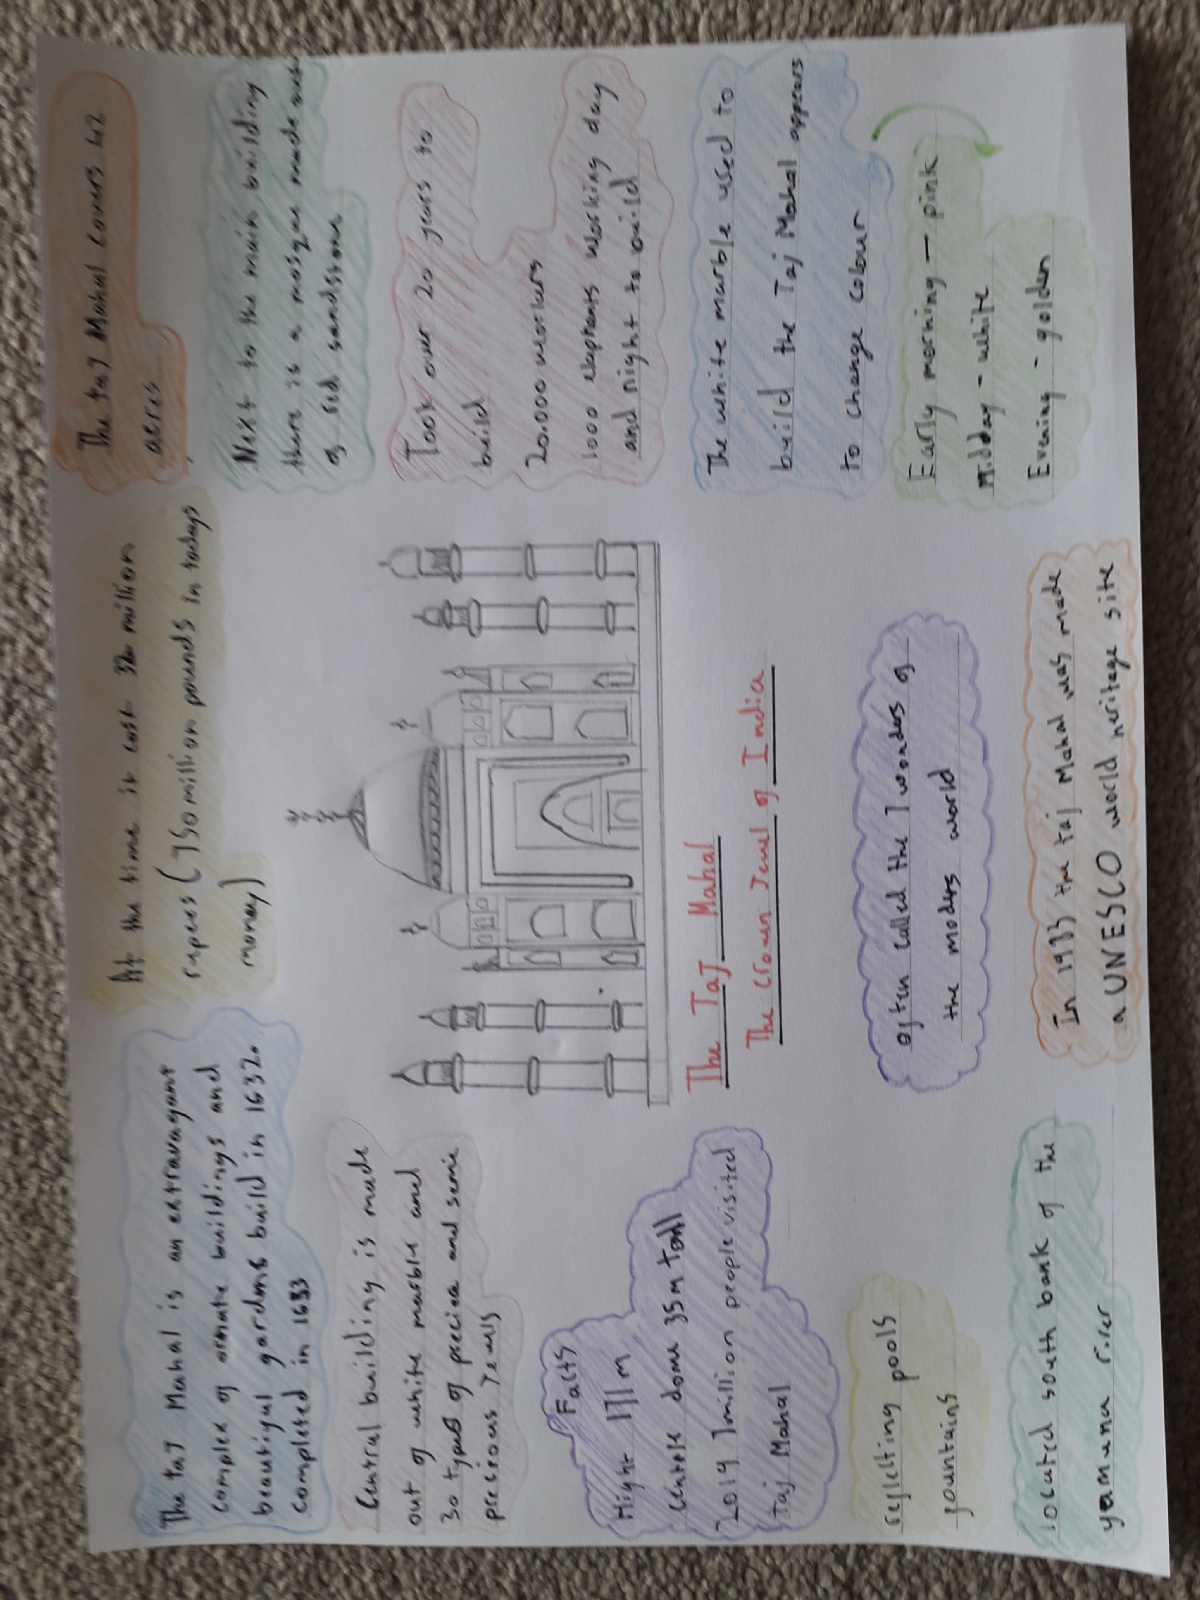 The taj Mahal is an extravagant
complex of ornate buildings and
beautiful gardens build in 1632.
completed in 1653
Central building is made
out of white marble and
30 types of precica and semi
precious Jewls
Facts
Hight 171m
Centre dome 35m tall
2019 7million people visited
Taj Mahal
reflecting pools
fountains
located south bank of the
yamuna river
At the time it cost 320 million
rupees (750million pounds in todays
money)
The Taj Mahal
The Crown Jewel of India
often called the 7 wonders of
the modern world
In 1983 the taj Mahal was made
a UNESCO world heritage site
The taj Mahal covers 42
acres
Next to the main building
there is a mosque made out
of red sandstone
Took over 20 years to
build
20.000 workers
1000 elaphants working day
and night to build
The white marble used to
build the Taj Mahal appears
to change colour
Early morning - pink
midday - white
Evening - golden